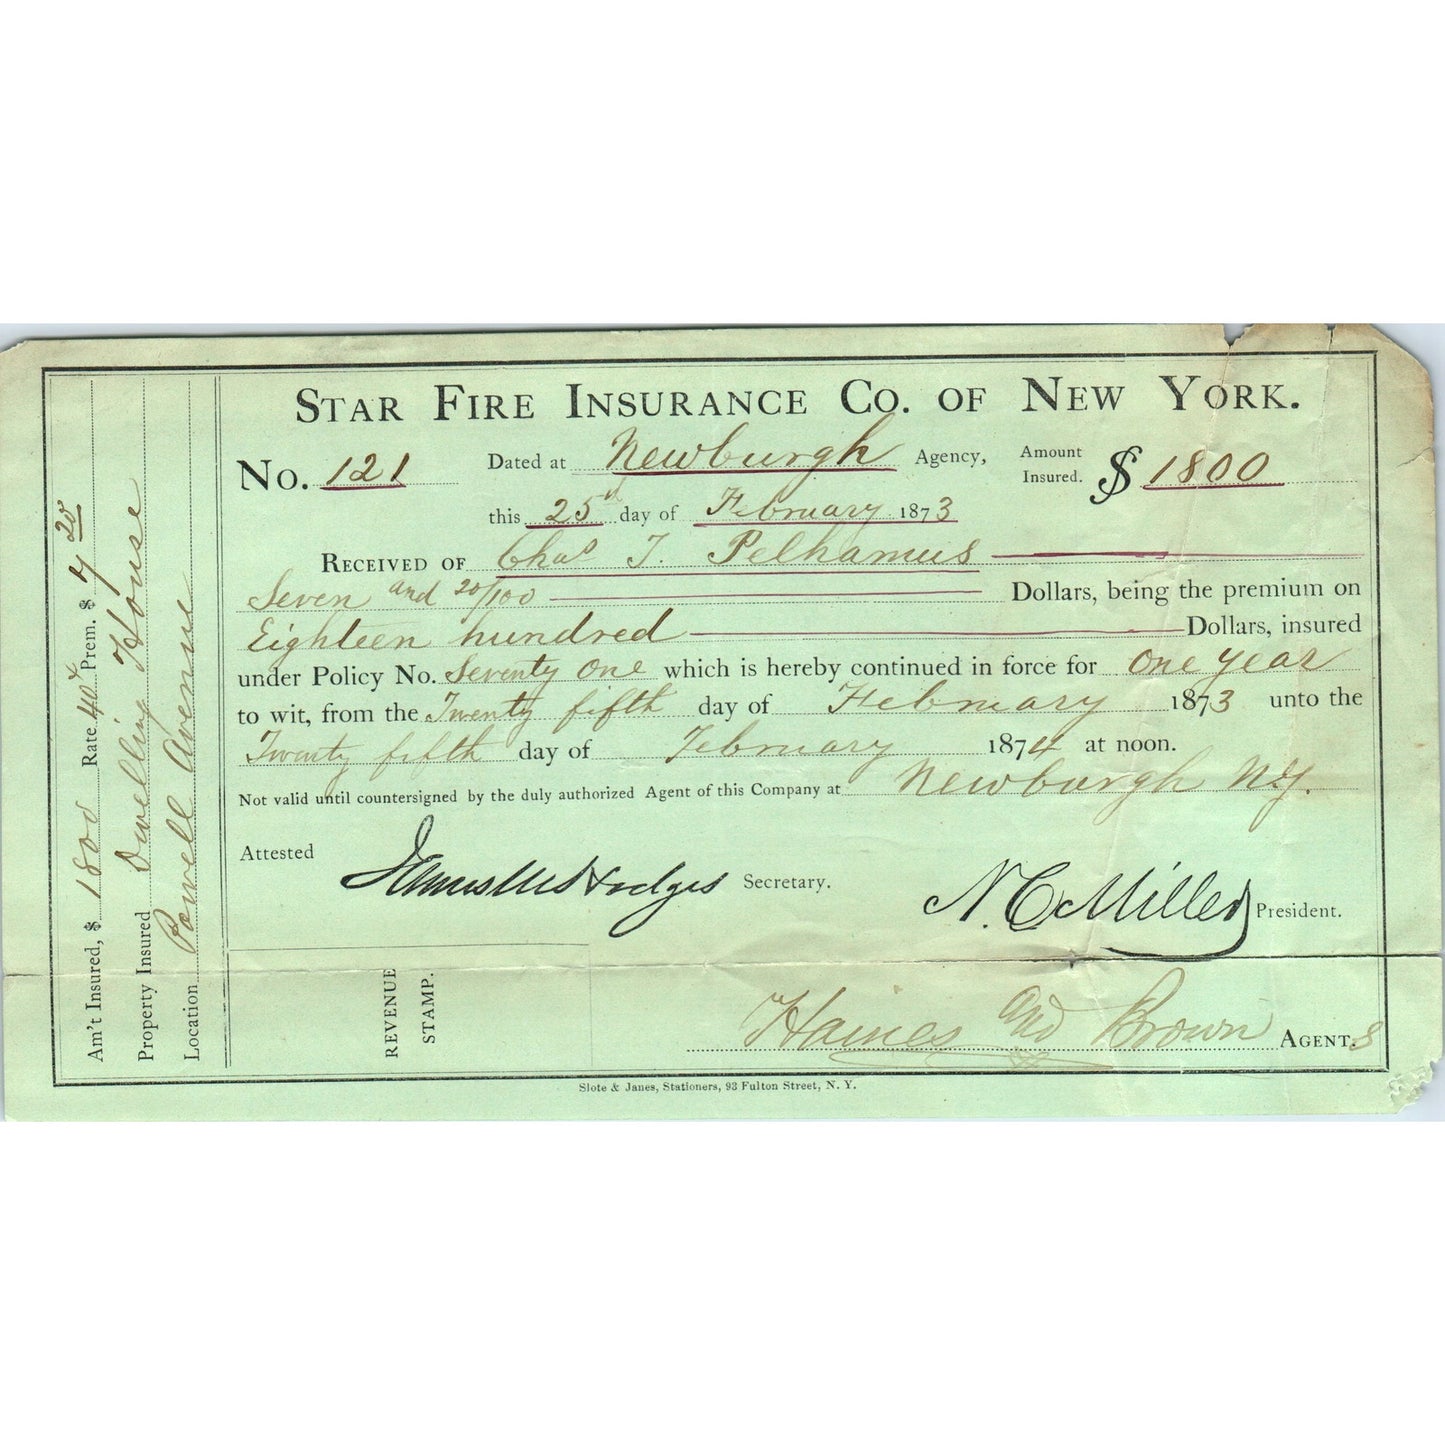 Am't Insured, $ 1800 Rate 40¢ Prem. $ 7 20
Property Insured Dwelling House
Location Powell Avenue
STAR FIRE INSURANCE CO. OF NEW YORK.
No. 121 Dated at Newburgh Agency, Amount Insured. $ 1800
this 25 day of February 1873
RECEIVED OF Chas T. Pelhamus
Seven and 20/100 Dollars, being the premium on
Eighteen hundred Dollars, insured
under Policy No. Seventy One which is hereby continued in force for One Year
to wit, from the Twenty fifth day of February 1873 unto the
Twenty fifth day of February 1874 at noon.
Not valid until countersigned by the duly authorized Agent of this Company at Newburgh N.Y.
Attested James M Hodges Secretary. N. C. Miller President.
REVENUE
STAMP.
Haines and Brown AGENTS
Slote & Janes, Stationers, 93 Fulton Street, N. Y.